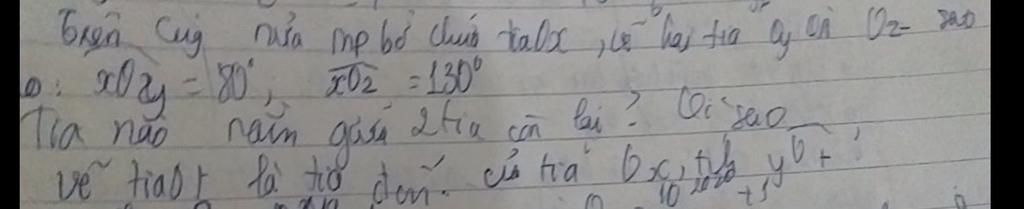 Trên cùg nửa mp bờ chứa tia Ox, vẽ hai tia Oy và Oz sao
xOy = 80°, xOz = 130°
Tia nào nằm giữa 2 tia còn lại? Vì sao
vẽ tia Ot là tia đối của tia Ox, tính yOt